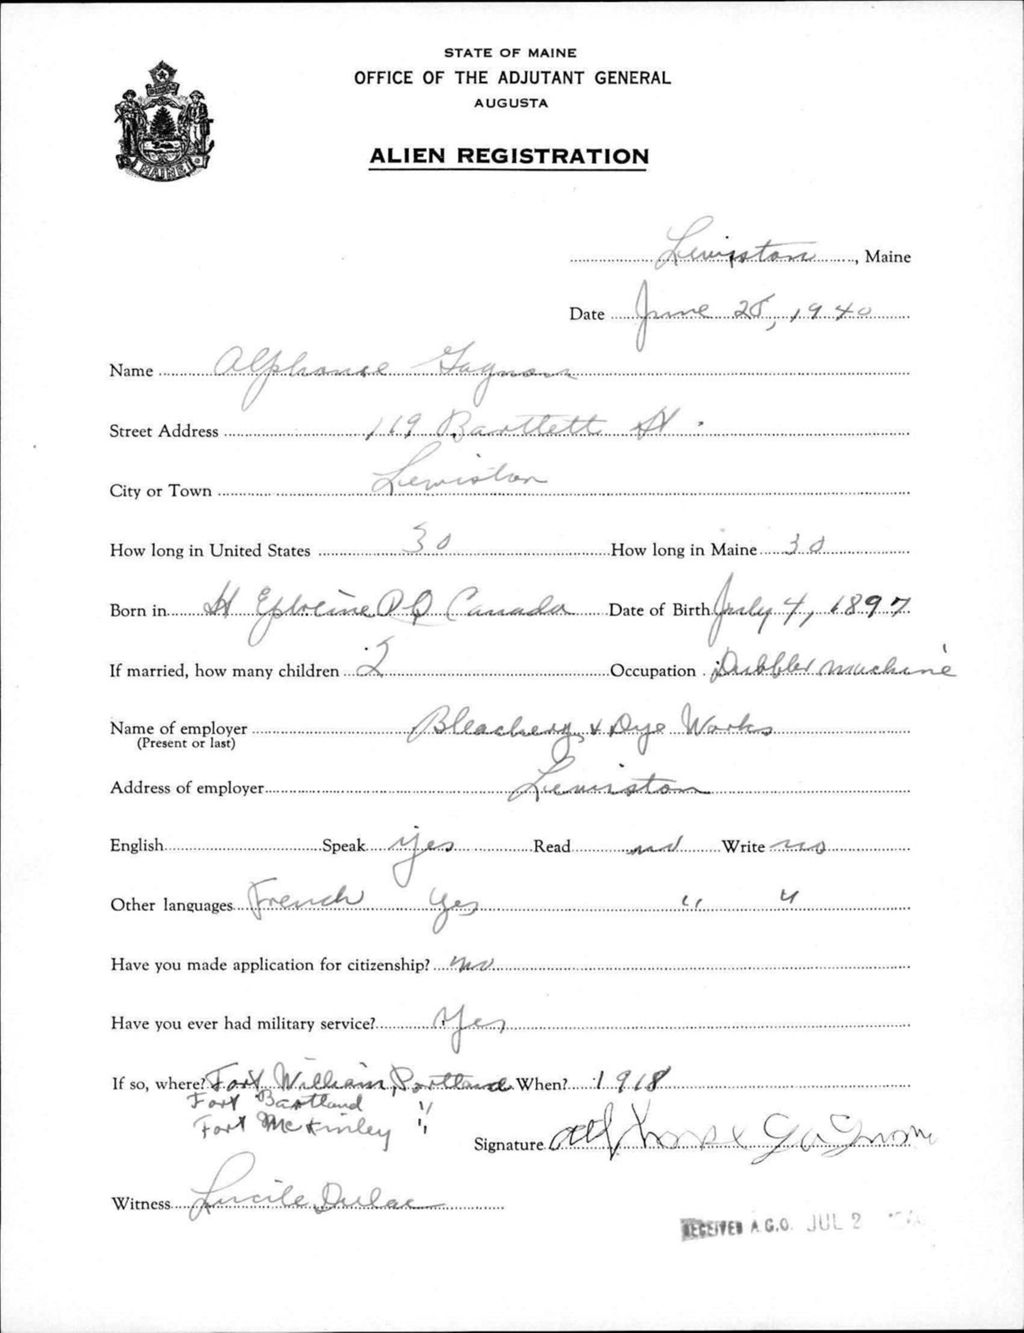 STATE OF MAINE
OFFICE OF THE ADJUTANT GENERAL
AUGUSTA
ALIEN REGISTRATION
MAINE
Lewiston, Maine
Date June 28, 1940
Name Alphonse Gagnon
Street Address 119 Bartlett St.
City or Town Lewiston
How long in United States 30 How long in Maine 30
Born in St Ephreine P Q Canada Date of Birth July 4, 1897
If married, how many children 2 Occupation Dubbler machine
Name of employer Bleachery & Dye Works
(Present or last)
Address of employer Lewiston
English Speak yes Read no Write no
Other languages French Yes " "
Have you made application for citizenship? no
Have you ever had military service? Yes
If so, where? Fort William, Portland When? 1918
Fort Bartland "
Fort McKinley "
Signature Alphonse Gagnon
Witness Lucile Dulac
RECEIVED A.G.O. JUL 2